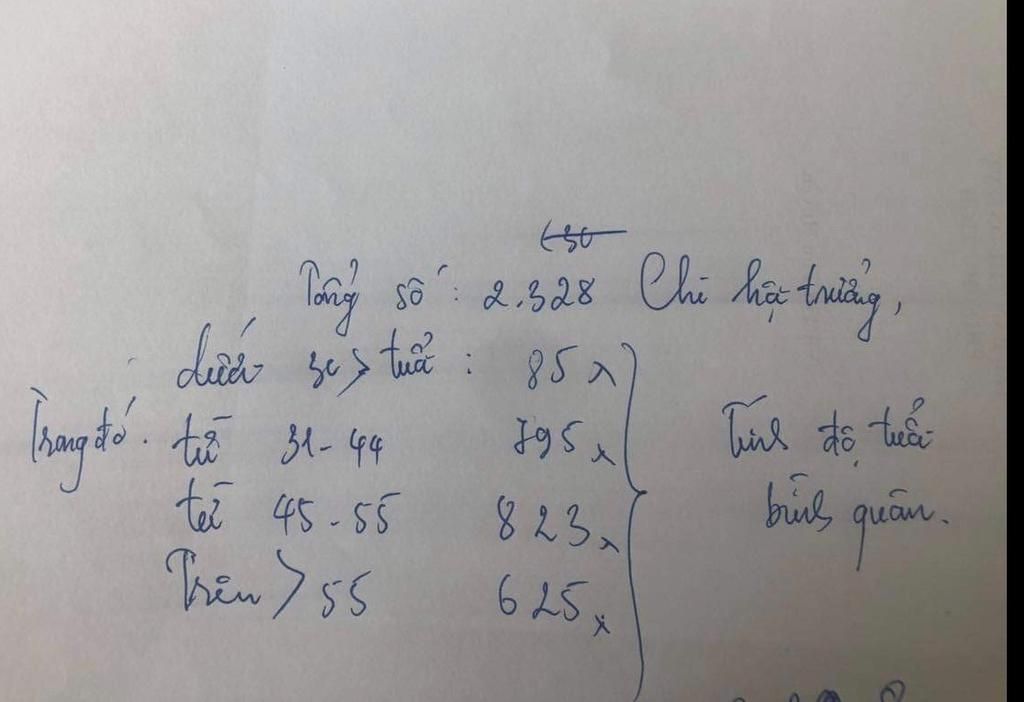 Tổng số: 2.328 Chi hội trưởng,
dưới 30 tuổi: 85
Trong đó. từ 31-44 795
từ 45-55 823
Trên > 55 625
Tính độ tuổi
bình quân.